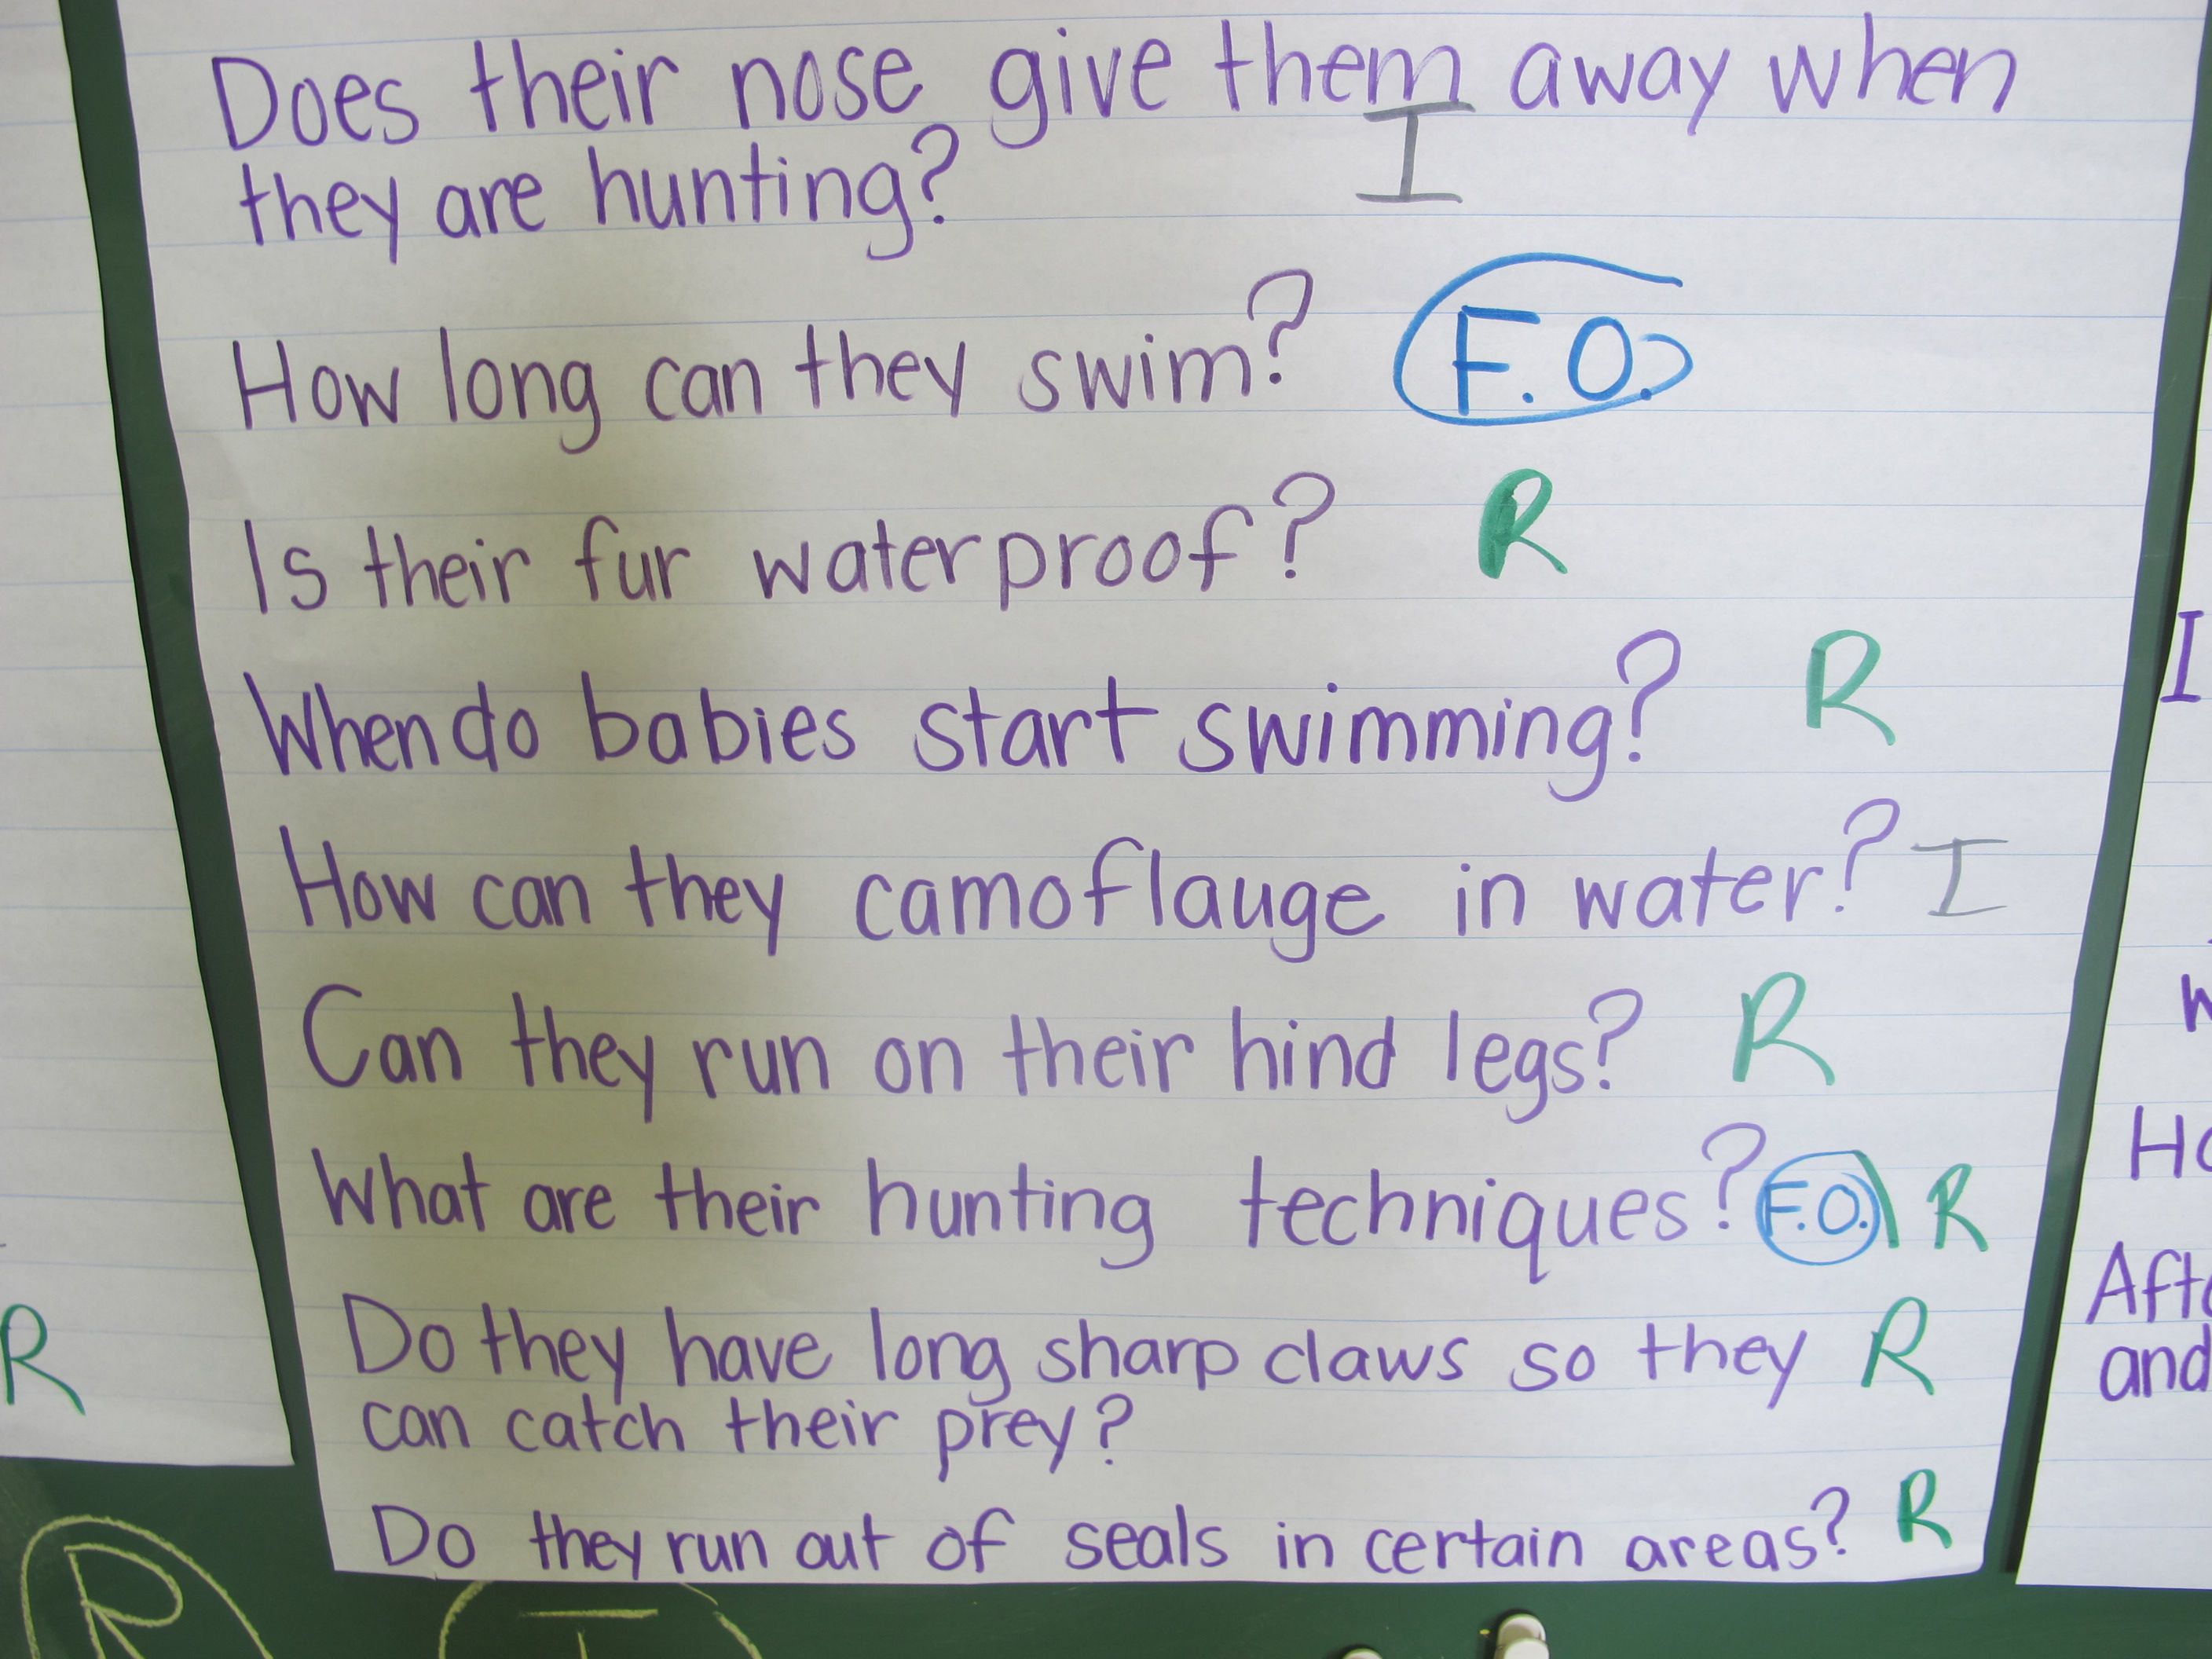 Does their nose give them away when
they are hunting? I
How long can they swim? F.O.
Is their fur waterproof? R
When do babies start swimming? R
How can they camoflauge in water? I
Can they run on their hind legs? R
What are their hunting techniques? F.O. R
Do they have long sharp claws so they R
can catch their prey?
Do they run out of seals in certain areas? R
R
R
I
and